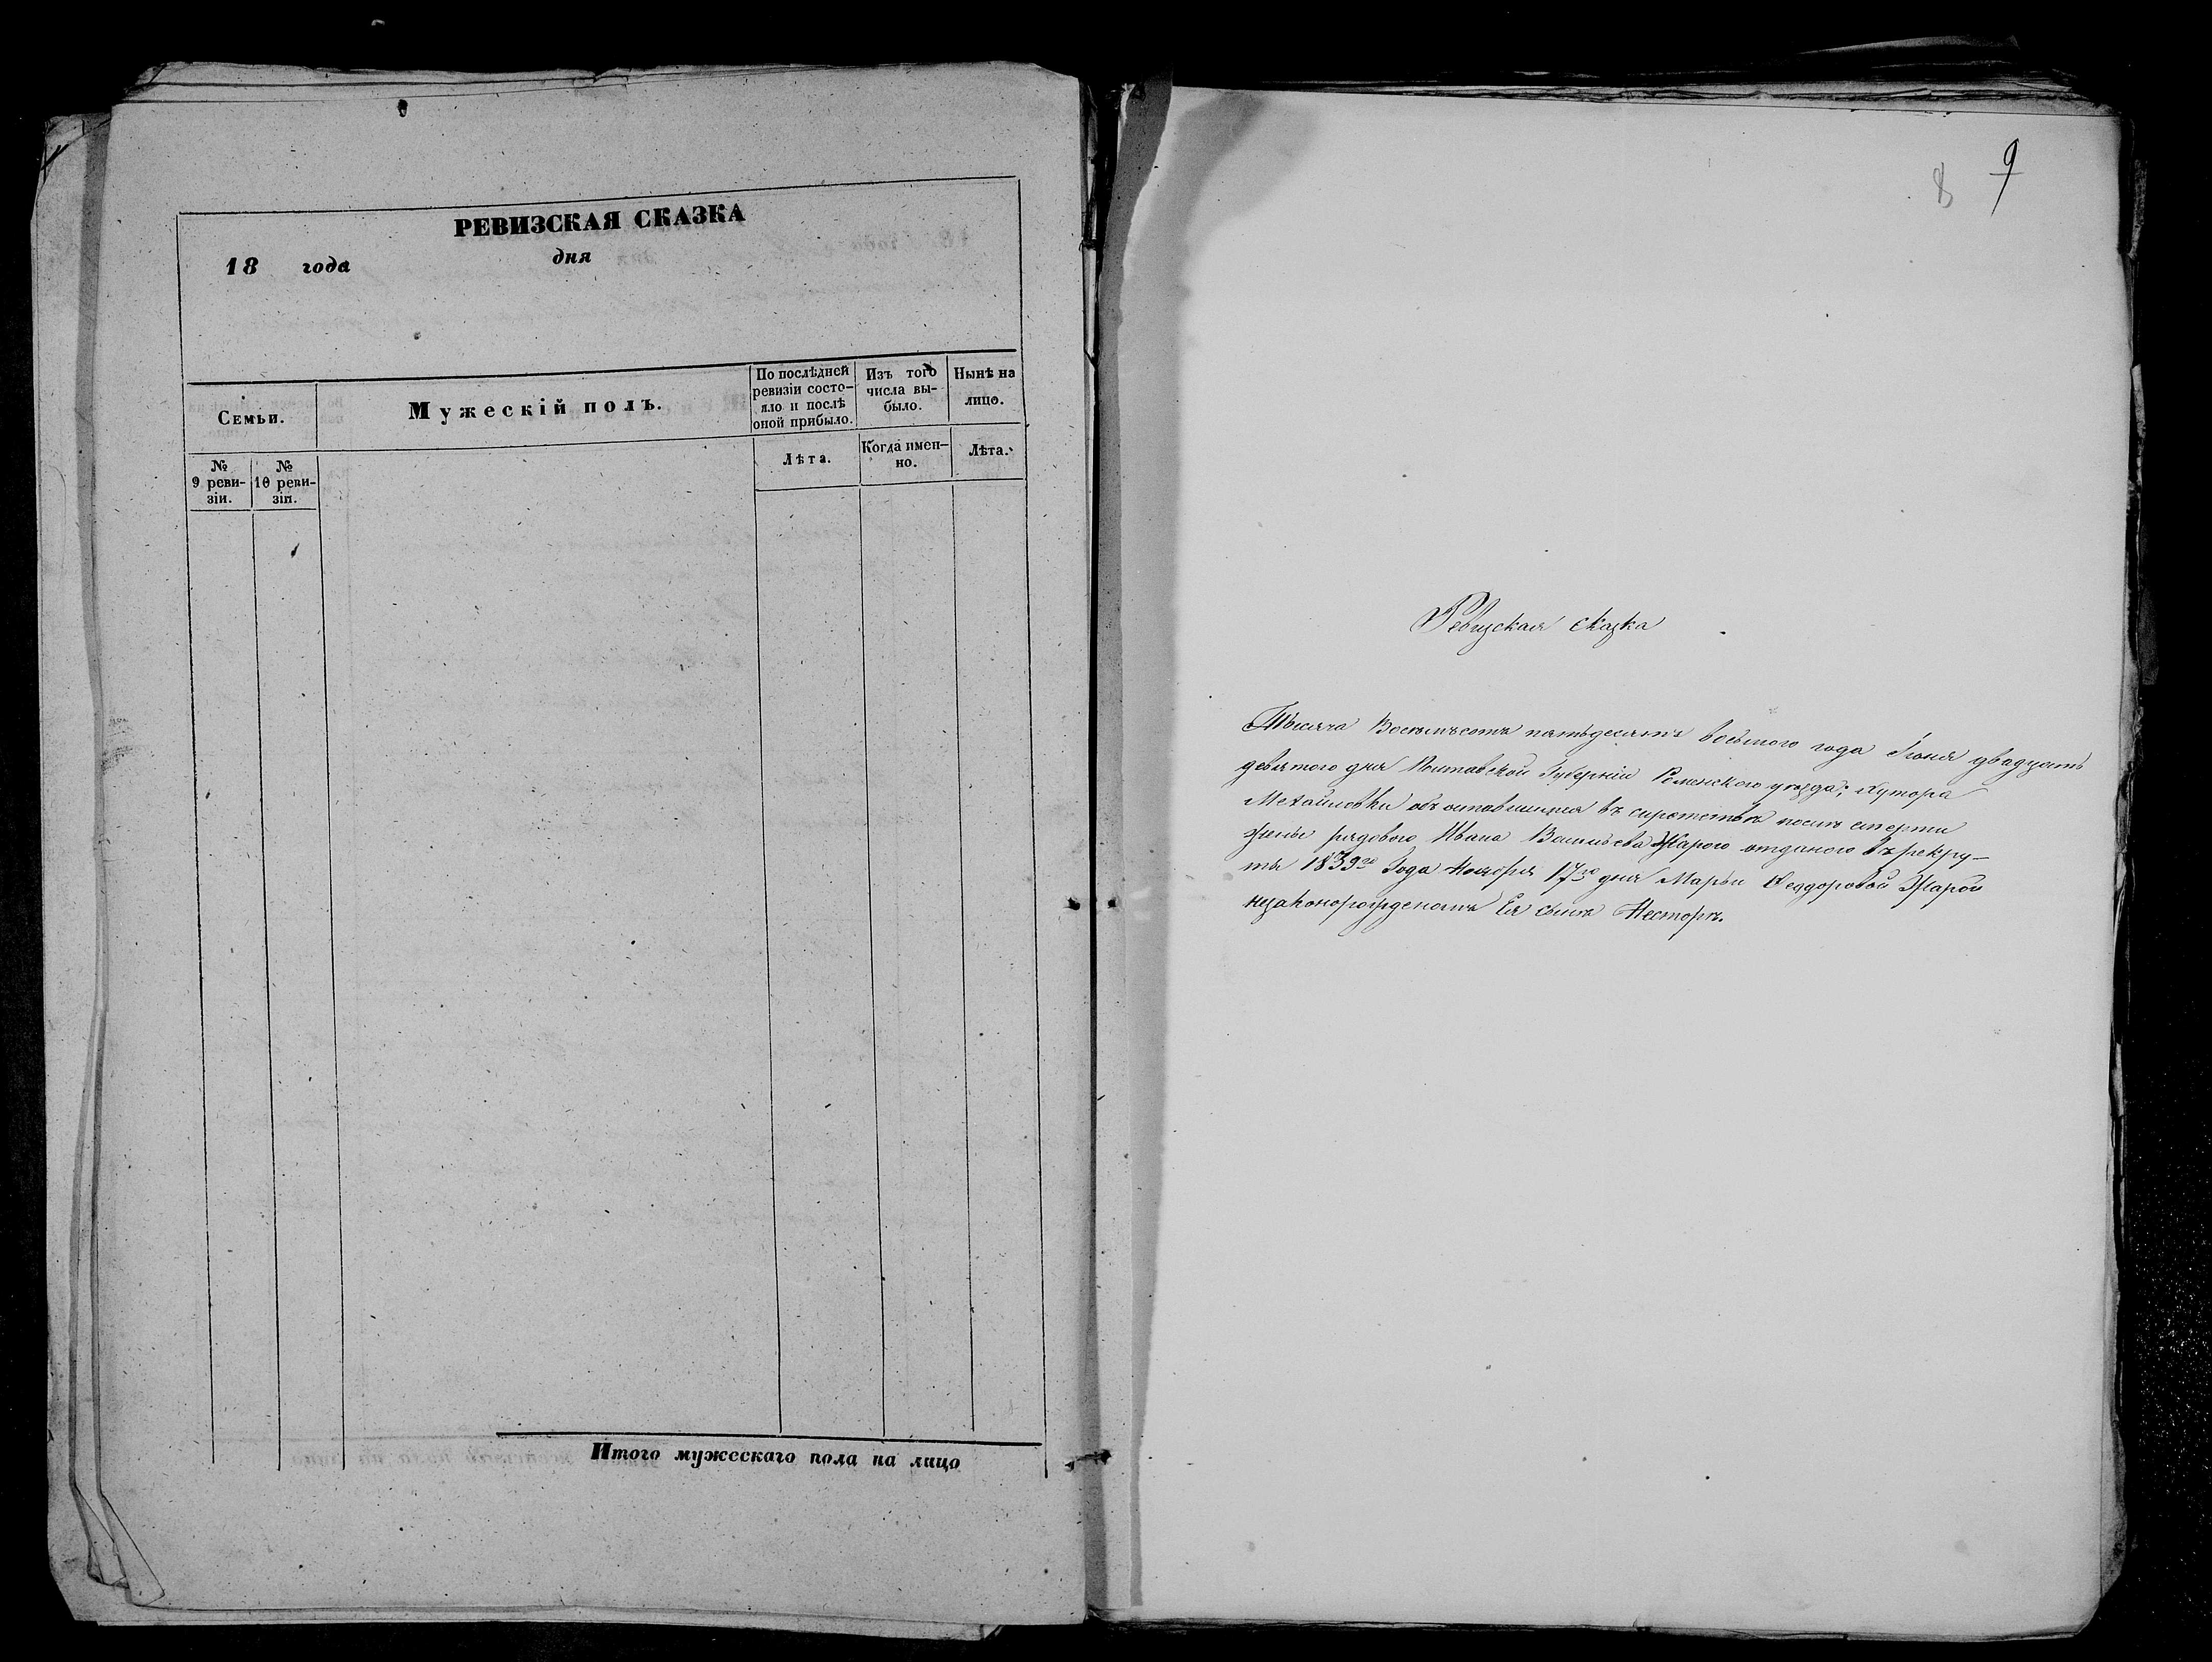 РЕВИЗСКАЯ СКАЗКА
18 года дня
Семьи.
Мужескій полъ.
По послѣдней ревизіи состо-
яло и послѣ
оной прибыло.
Изъ того
числа вы-
было.
Нынѣ на
лицо.
№
9 реви-
зіи.
№
10 реви-
зіи.
Лѣта.
Когда имен-
но.
Лѣта.
Итого мужескаго пола на лицо
8 9
Ревизская сказка
Тысяча Восемьсотъ пятьдесятъ восьмого года Іюня двадцать
девятого дня Полтавской Губерніи Роменского уѣзда; Хутора
объ оставшимся въ сиротствѣ послѣ смерти
жены рядового Ивана Васильева Жарого отданого въ рекру-
ты 1839го Года Ноября 17го дня Марьи Феддоровой Жарой
незаконорожденомъ Ея сынѣ Несторѣ.